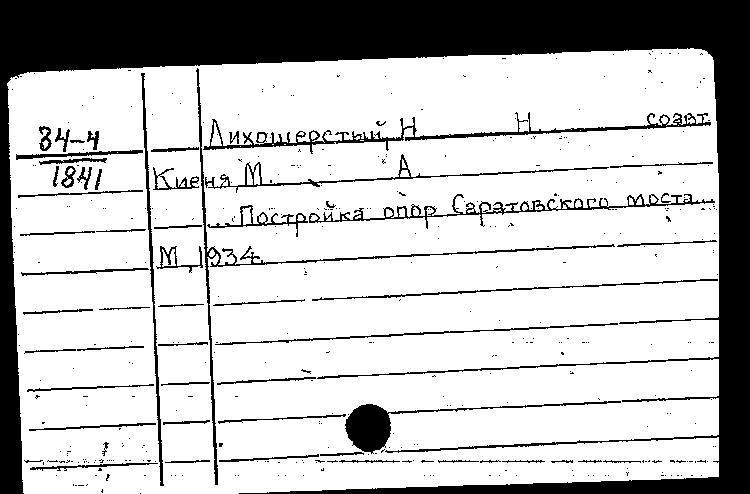 34-4
1841
Лихошерстый, Н. Н. соавт.
Киеня, М. А.
... Постройка опор Саратовского моста...
М., 1934.